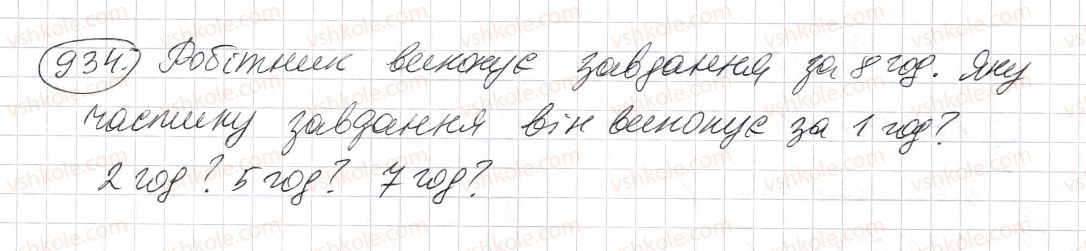 934. Робітник виконує завдання за 8 год. Яку
частину завдання він виконує за 1 год?
2 год? 5 год? 7 год?